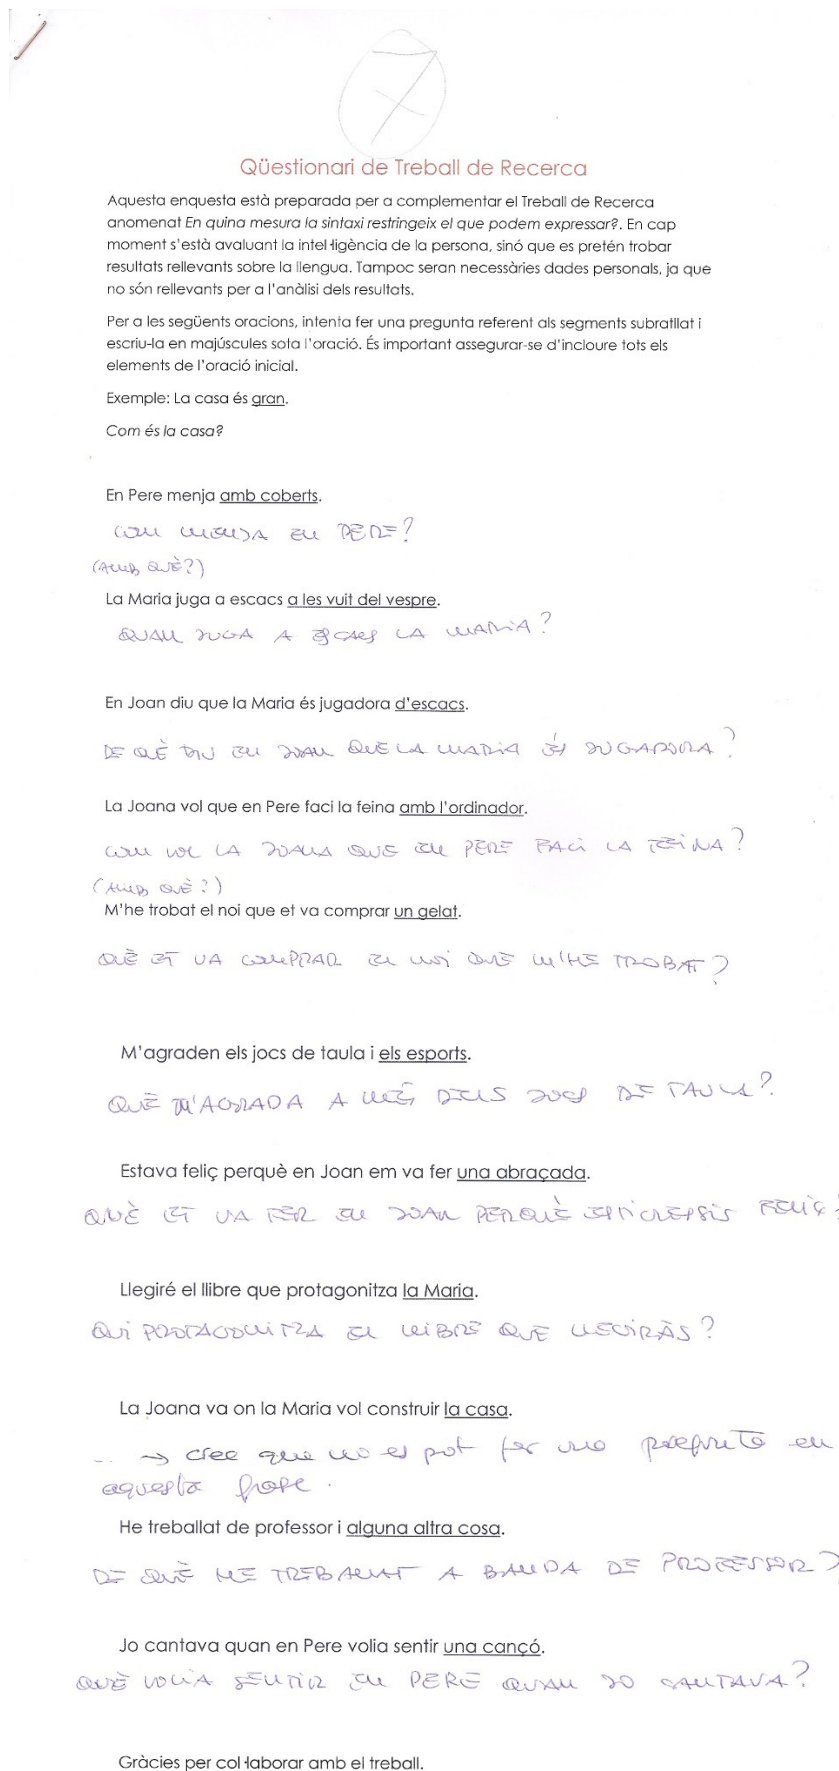 7
Qüestionari de Treball de Recerca
Aquesta enquesta està preparada per a complementar el Treball de Recerca
anomenat En quina mesura la sintaxi restringeix el que podem expressar?. En cap
moment s'està avaluant la intel·ligència de la persona, sinó que es pretén trobar
resultats rellevants sobre la llengua. Tampoc seran necessàries dades personals, ja que
no són rellevants per a l'anàlisi dels resultats.
Per a les següents oracions, intenta fer una pregunta referent als segments subratllat i
escriu-la en majúscules sota l'oració. És important assegurar-se d'incloure tots els
elements de l'oració inicial.
Exemple: La casa és gran.
Com és la casa?
En Pere menja amb coberts.
COM MENJA EN PERE?
(AMB QUÈ?)
La Maria juga a escacs a les vuit del vespre.
QUAN JUGA A ESCACS LA MARIA?
En Joan diu que la Maria és jugadora d'escacs.
DE QUÈ DIU EN JOAN QUE LA MARIA ÉS JUGADORA?
La Joana vol que en Pere faci la feina amb l'ordinador.
COM VOL LA JOANA QUE EN PERE FACI LA FEINA?
(AMB QUÈ?)
M'he trobat el noi que et va comprar un gelat.
QUÈ ET VA COMPRAR EL NOI QUE M'HE TROBAT?
M'agraden els jocs de taula i els esports.
QUÈ M'AGRADA A MÉS DELS JOCS DE TAULA?
Estava feliç perquè en Joan em va fer una abraçada.
QUÈ ET VA FER EN JOAN PERQUÈ ESTIGUESSIS FELIÇ?
Llegiré el llibre que protagonitza la Maria.
QUI PROTAGONITZA EL LLIBRE QUE LLEGIRÀS?
La Joana va on la Maria vol construir la casa.
... → crec que no es pot fer una pregunta en
aquesta frase.
He treballat de professor i alguna altra cosa.
DE QUÈ HE TREBALLAT A BANDA DE PROFESSOR?
Jo cantava quan en Pere volia sentir una cançó.
QUÈ VOLIA SENTIR EN PERE QUAN JO CANTAVA?
Gràcies per col·laborar amb el treball.